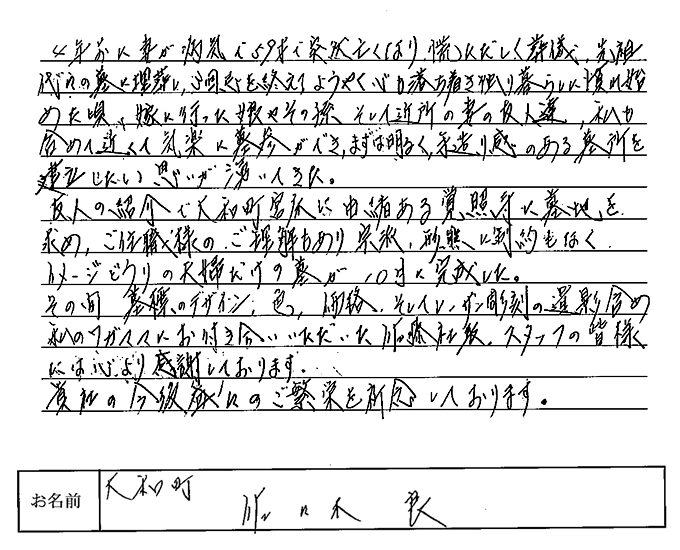 4年前に妻が病気で59才で突然亡くなり、慌ただしく葬儀、先祖
代々の墓に埋葬し、3回忌を終えてようやく心も落ち着き独り暮らしに慣れ始
めた頃、嫁に行った娘やその孫、そして近所の妻の友人達、私も
含めて近くて気楽に墓参ができ、まずは明るく、手造り感のある墓所を
建立したい思いが湧いてきた。
友人の紹介で大和町宮床に由緒ある覚照寺に墓地を
求め、ご住職様のご理解もあり宗派、形態に制約もなく
イメージどうりの夫婦だけの墓が10月に完成した。
その間 墓標のデザイン、色、価格、そして 彫刻の選影含め
私のワガママにお付き合いいただいた 社長、スタッフの皆様
には心より感謝しております。
貴社の今後益々のご繁栄を祈念しております。
お名前
大和町
木 良